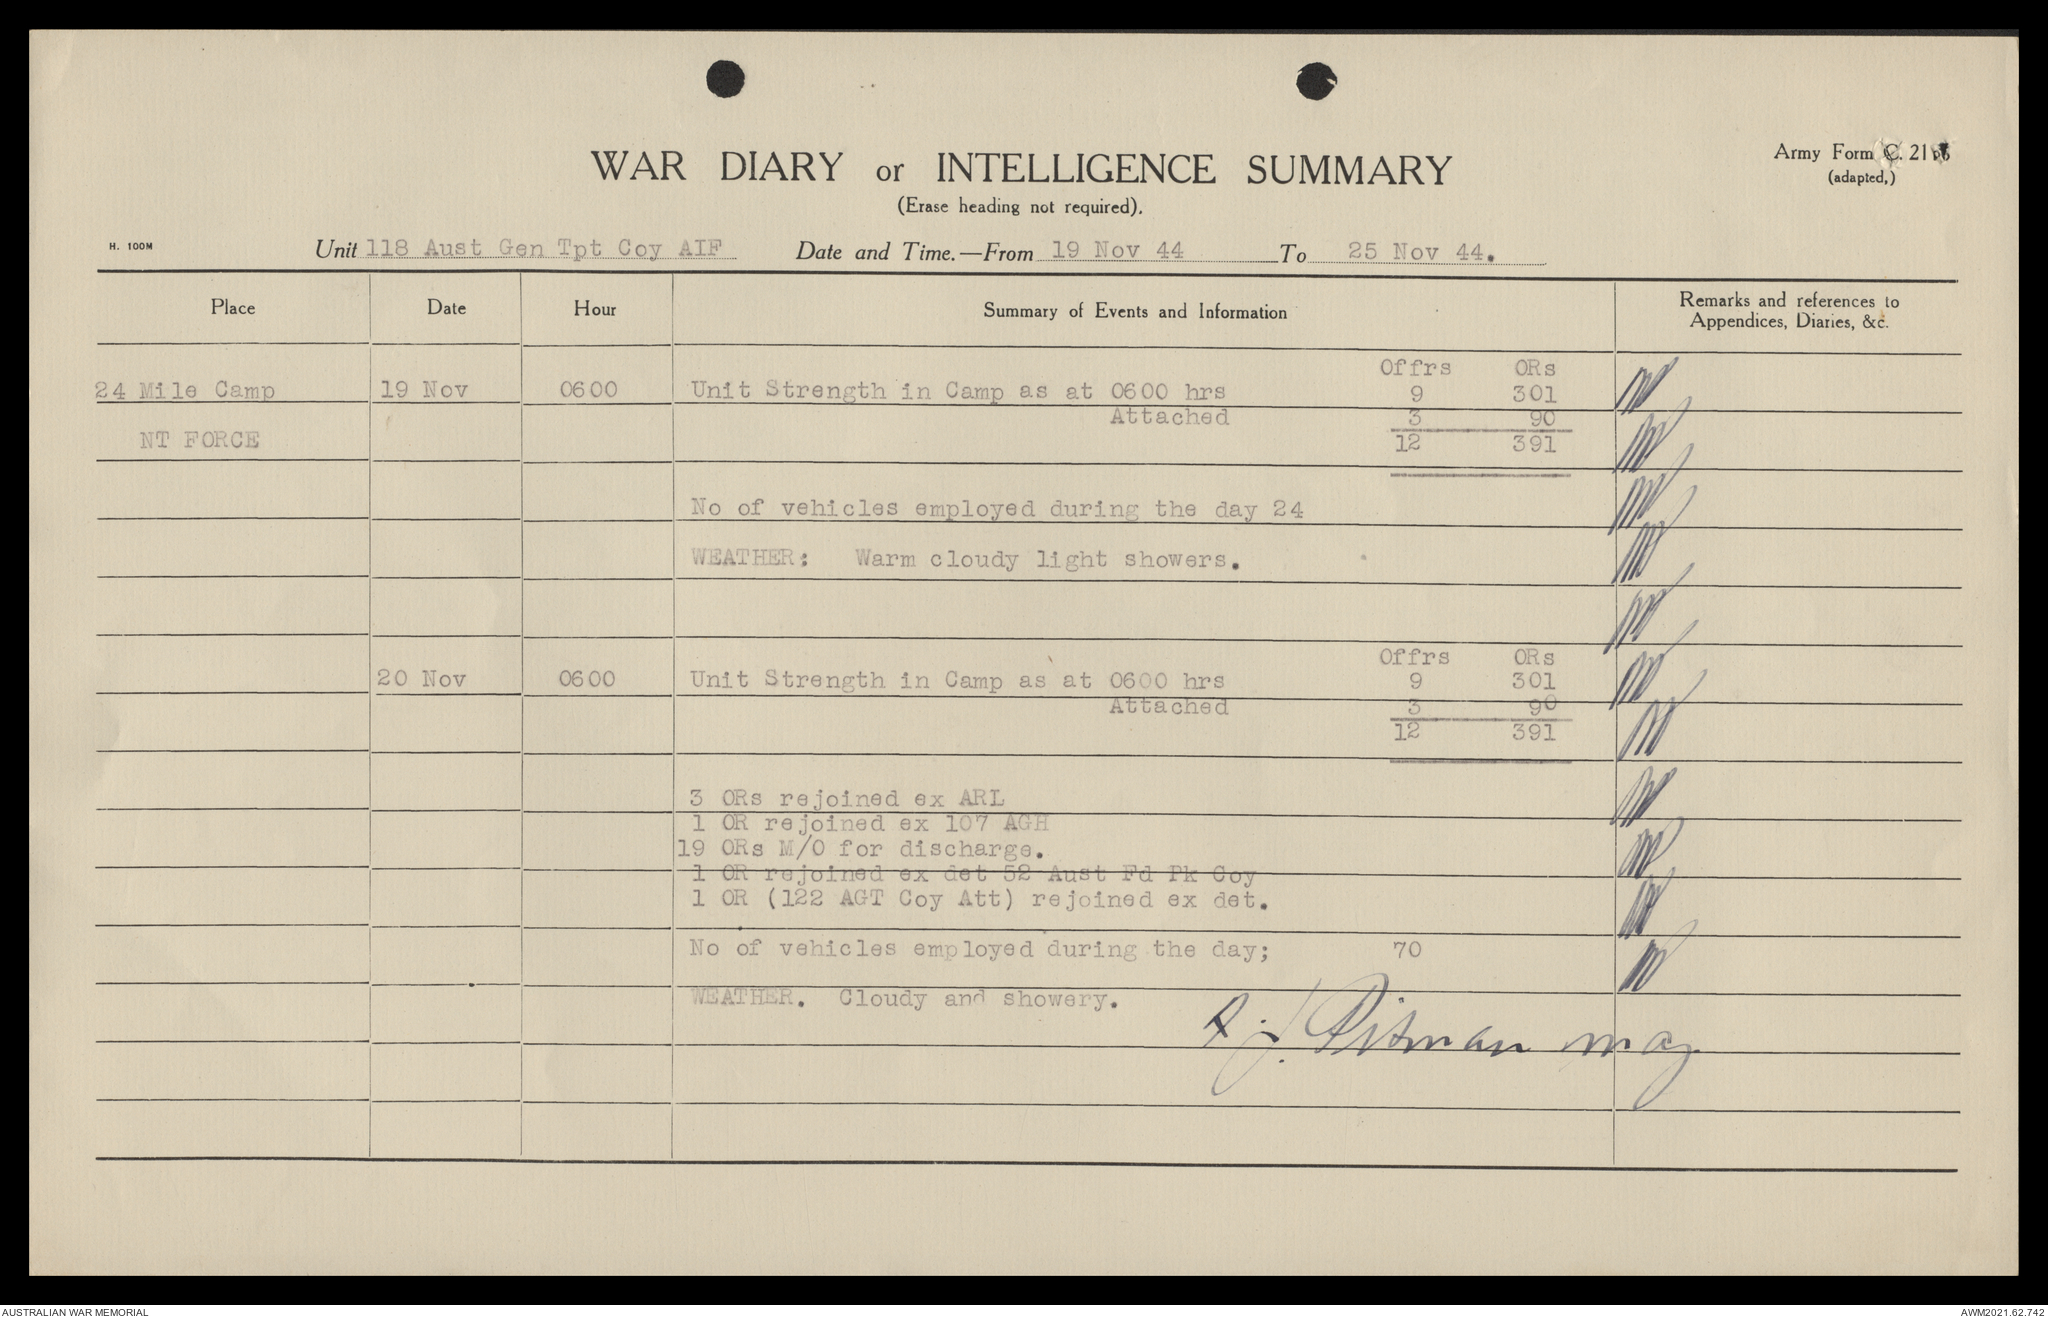 Army Form C. 21
(adapted,)
WAR DIARY or INTELLIGENCE SUMMARY
(Erase heading not required).
H. 100M
Unit 118 Aust Gen Tpt Coy AIF Date and Time.—From 19 Nov 44 To 25 Nov 44.
Place Date Hour Summary of Events and Information Remarks and references to
Appendices, Diaries, &c.
Offrs ORs
24 Mile Camp 19 Nov 0600 Unit Strength in Camp as at 0600 hrs 9 301
Attached 3 90
NT FORCE 12 391
No of vehicles employed during the day 24
WEATHER: Warm cloudy light showers.
Offrs ORs
20 Nov 0600 Unit Strength in Camp as at 0600 hrs 9 301
Attached 3 90
12 391
3 ORs rejoined ex ARL
1 OR rejoined ex 107 AGH
19 ORs M/O for discharge.
1 OR rejoined ex det 52 Aust Fd Pk Coy
1 OR (122 AGT Coy Att) rejoined ex det.
No of vehicles employed during the day; 70
WEATHER. Cloudy and showery.
Pitman Maj
AUSTRALIAN WAR MEMORIAL AWM2021.62.742